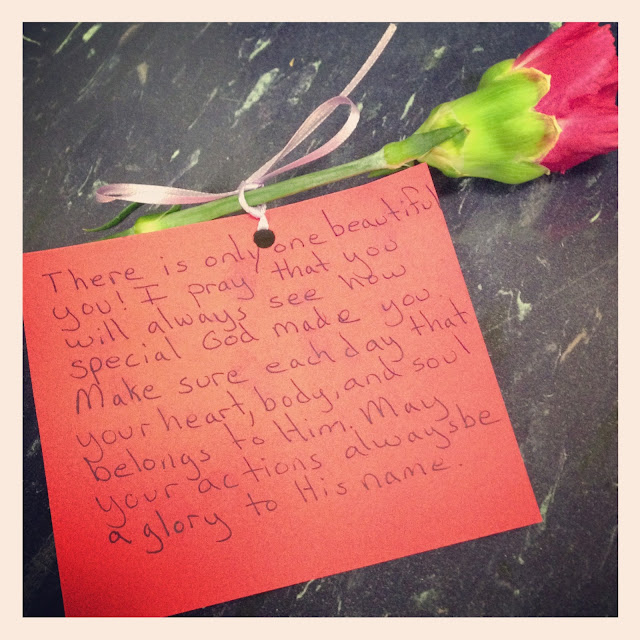 There is only one beautiful
you! I pray that you
will always see how
special God made you.
Make sure each day that
your heart, body, and soul
belongs to Him. May
your actions always be
a glory to His name.